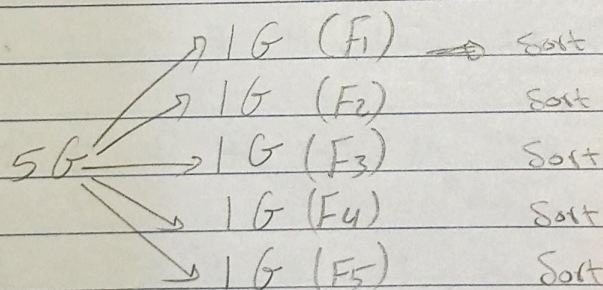 1 G (F1) Sort
1 G (F2) Sort
5 G 1 G (F3) Sort
1 G (F4) Sort
1 G (F5) Sort